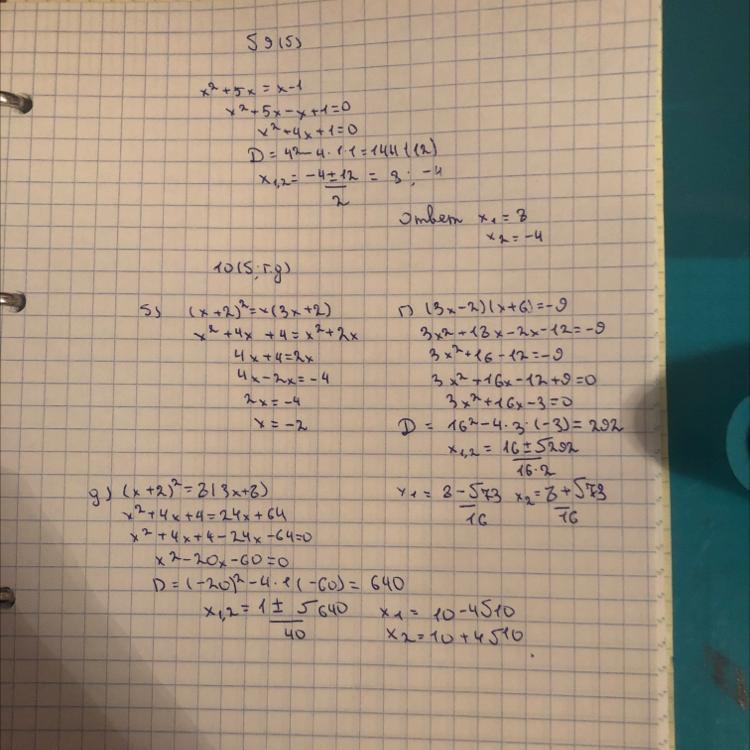 59(5)
x²+5x=x-1
x²+5x-x+1=0
x²+4x+1=0
D=4²-4·1·1=144(12)
x₁,₂=(-4±12)/2=8;-4
Ответ x₁=8
x₂=-4
10(5;г.д)
5) (x+2)²=x(3x+2)
x²+4x+4=x²+2x
4x+4=2x
4x-2x=-4
2x=-4
x=-2
г) (3x-2)(x+6)=-9
3x²+18x-2x-12=-9
3x²+16-12=-9
3x²+16x-12+9=0
3x²+16x-3=0
D=16²-4·3·(-3)=292
x₁,₂=(16±√292)/(16·2)
x₁=(8-√73)/16 x₂=(8+√73)/16
д) (x+2)²=8(3x+8)
x²+4x+4=24x+64
x²+4x+4-24x-64=0
x²-20x-60=0
D=(-20)²-4·1(-60)=640
x₁,₂=(1±√640)/40 x₁=10-4√10
x₂=10+4√10